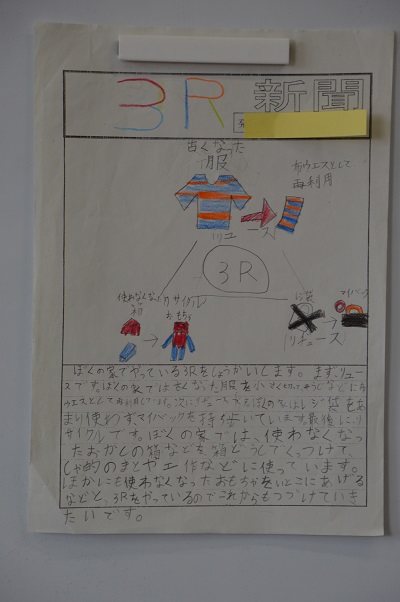 3R 新聞
古くなった
服
布ウエスとして
再利用
リユース
3R
使わなくなった
箱
リサイクル
おもちゃ
レジ袋
マイバック
(リデュース)
ぼくの家でやっている3Rをしょうかいします。まず、リユー
スです。ぼくの家では古くなった服を小さく切って
ウエスとして
あまり使わず、マイバックを持ち歩いています。最後に、リ
サイクルです。ぼくの家では、使わなくなっ
たおかしの箱などを箱どうしでくっつけて、
しゃ的のまとや工作などに使っています。
ほかにも使わなくなったおもちゃをいとこにあげる
などと、3Rをやっているのでこれからもつづけていき
たいです。